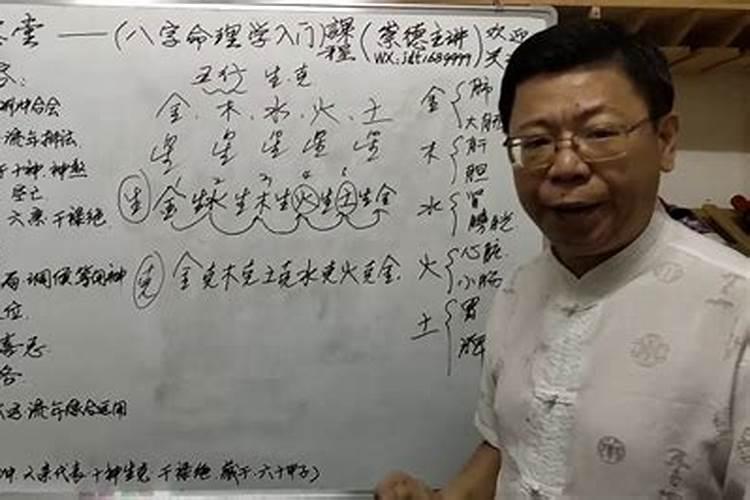 堂 ——(八字命理学入门)課程(蔡德主讲)欢迎
WX:jdt1689999
五行 生克
金、木、水、火、土
星 星 星 星 星
生 金生水生木生火生土生金
1 2 3 4 5
克 金克木克土克水克火克金.
金 { 肺
大肠
木 { 肝
胆
水 { 肾
膀胱
火 { 心脏
小肠
土 { 胃
脾
合会
流年排法
十神 神煞
空亡
六亲 干禄绝
调候等用神
位
喜忌
各
流年综合运用
六亲代表 十神生克 干禄绝 藏干 六十甲子)